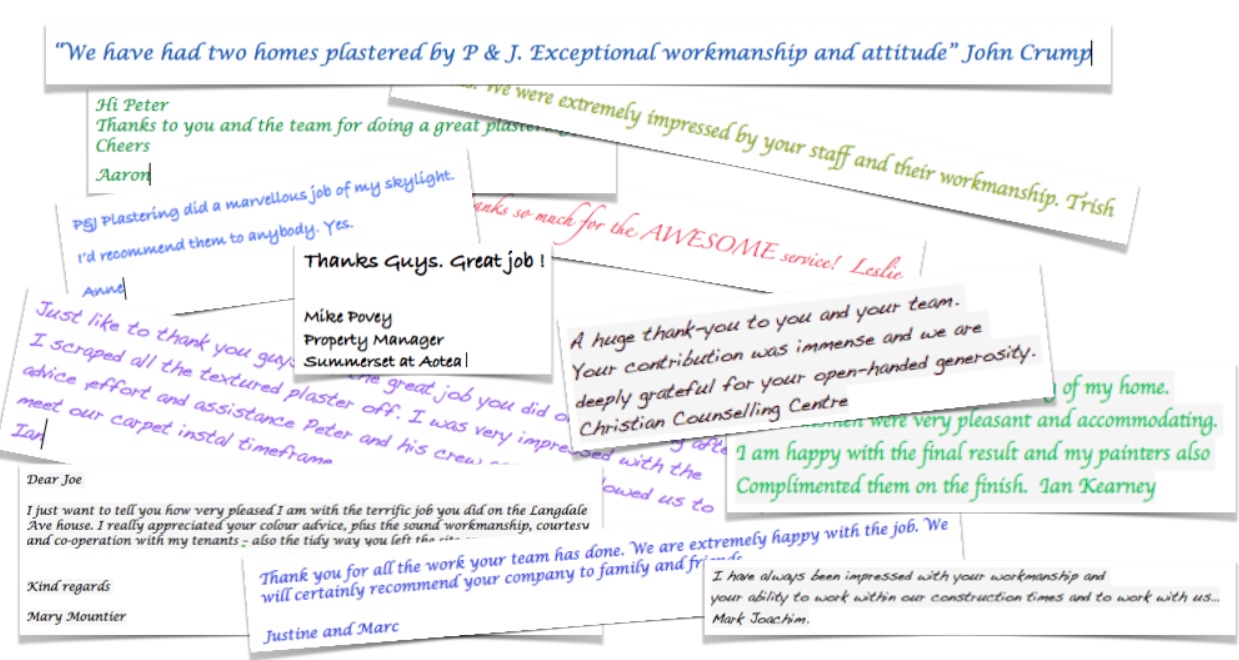 “We have had two homes plastered by P & J. Exceptional workmanship and attitude” John Crump
Hi Peter
Thanks to you and the team for doing a great
Cheers
Aaron
We were extremely impressed by your staff and their workmanship. Trish
P&J Plastering did a marvellous job of my skylight.
I'd recommend them to anybody. Yes.
Anne
so much for the AWESOME service! Leslie
Thanks Guys. Great job !
Mike Povey
Property Manager
Summerset at Aotea
Just like to thank you guys the great job you did
I scraped all the textured plaster off. I was very impressed with the
advice ,effort and assistance Peter and his crew
meet our carpet instal timeframe
us to
Ian
A huge thank-you to you and your team.
Your contribution was immense and we are
deeply grateful for your open-handed generosity.
Christian Counselling Centre
of my home.
were very pleasant and accommodating.
I am happy with the final result and my painters also
Complimented them on the finish. Ian Kearney
Dear Joe
I just want to tell you how very pleased I am with the terrific job you did on the Langdale
Ave house. I really appreciated your colour advice, plus the sound workmanship, courtesy
and co-operation with my tenants - also the tidy way you left the site
Kind regards
Mary Mountier
Thank you for all the work your team has done. We are extremely happy with the job. We
will certainly recommend your company to family and friends
Justine and Marc
I have always been impressed with your workmanship and
your ability to work within our construction times and to work with us...
Mark Joachim.